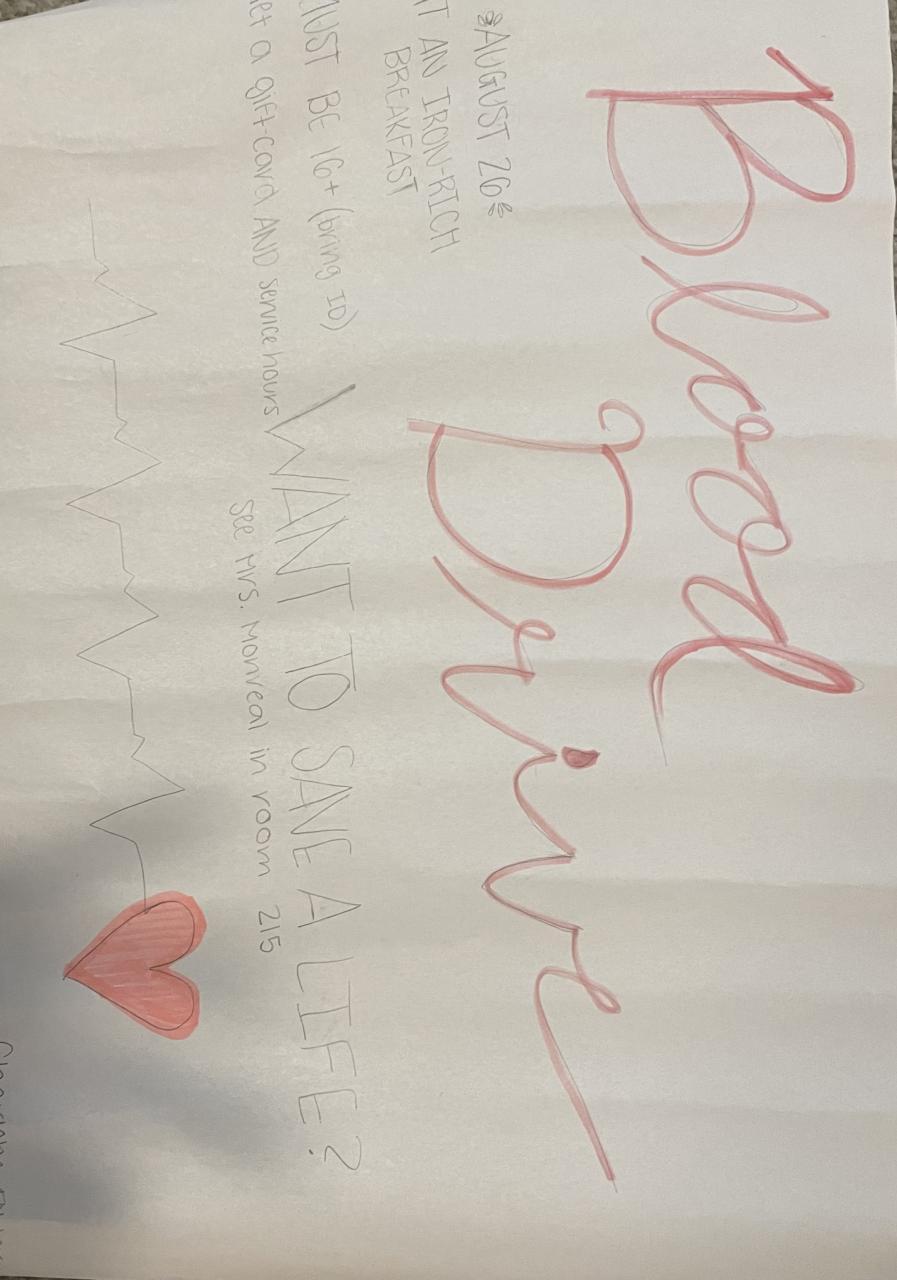 Blood
Drive
AUGUST 26
T AN IRON-RICH
BREAKFAST
UST BE 16+ (bring ID)
et a gift-card AND service hours
WANT TO SAVE A LIFE?
see Mrs. Monreal in room 215